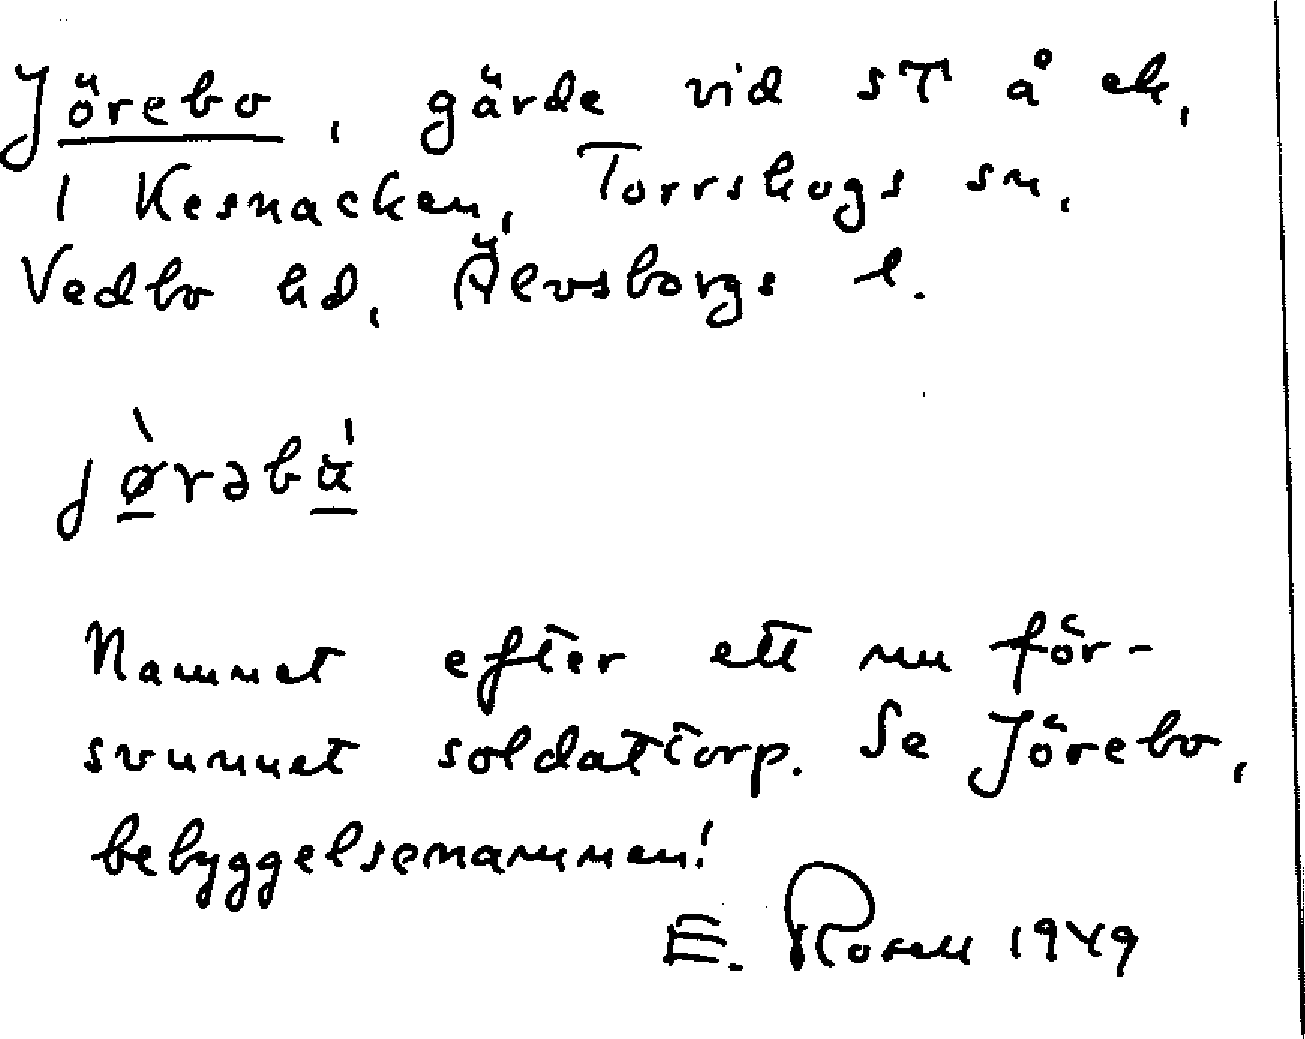 Jörebo, gärde vid ST å ek,
1 Kesnacken, Torrskogs sn,
Vedbo hd, Älvsborgs l.
jø̀rəbú
Namnet efter ett nu för-
svunnet soldattorp. Se Jörebo,
bebyggelsenamnen!
E. Rosell 1949